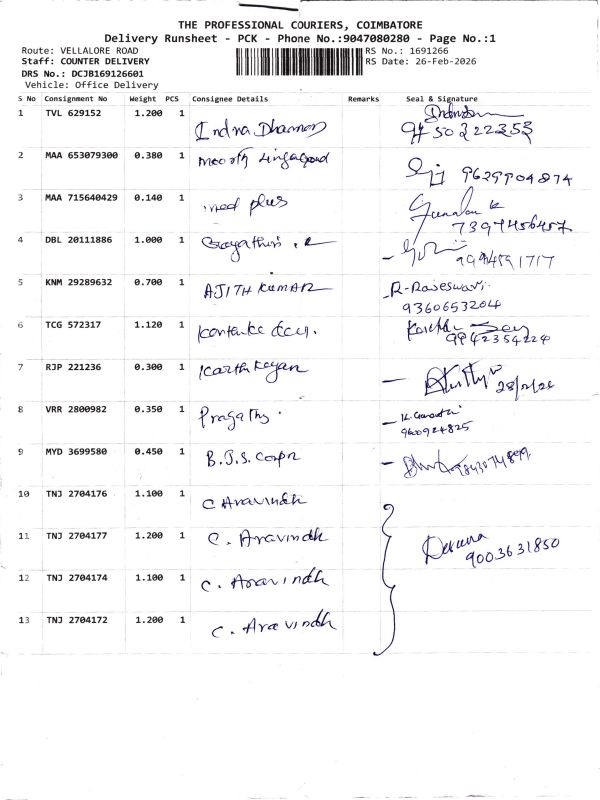 THE PROFESSIONAL COURIERS, COIMBATORE
Delivery Runsheet - PCK - Phone No.:9047080280 - Page No.:1
Route: VELLALORE ROAD RS No.: 1691266
Staff: COUNTER DELIVERY RS Date: 26-Feb-2026
DRS No.: DCJB169126601
Vehicle: Office Delivery
S No Consignment No Weight PCS Consignee Details Remarks Seal & Signature
1 TVL 629152 1.200 1 Indra
2 MAA 653079300 0.380 1 9629904874
3 MAA 715640429 0.140 1 med plus
4 DBL 20111886 1.000 1 Gayathiri . R
5 KNM 29289632 0.700 1 AJITH KUMAR R-Rajeswari
9360653204
6 TCG 572317 1.120 1 9942354224
7 RJP 221236 0.300 1 Karthikeyan
8 VRR 2800982 0.350 1
9 MYD 3699580 0.450 1 B.J.S. Corpn
10 TNJ 2704176 1.100 1 C Aravindh
11 TNJ 2704177 1.200 1 C. Aravindh
9003631850
12 TNJ 2704174 1.100 1 C. Aravindh
13 TNJ 2704172 1.200 1 C. Aravindh